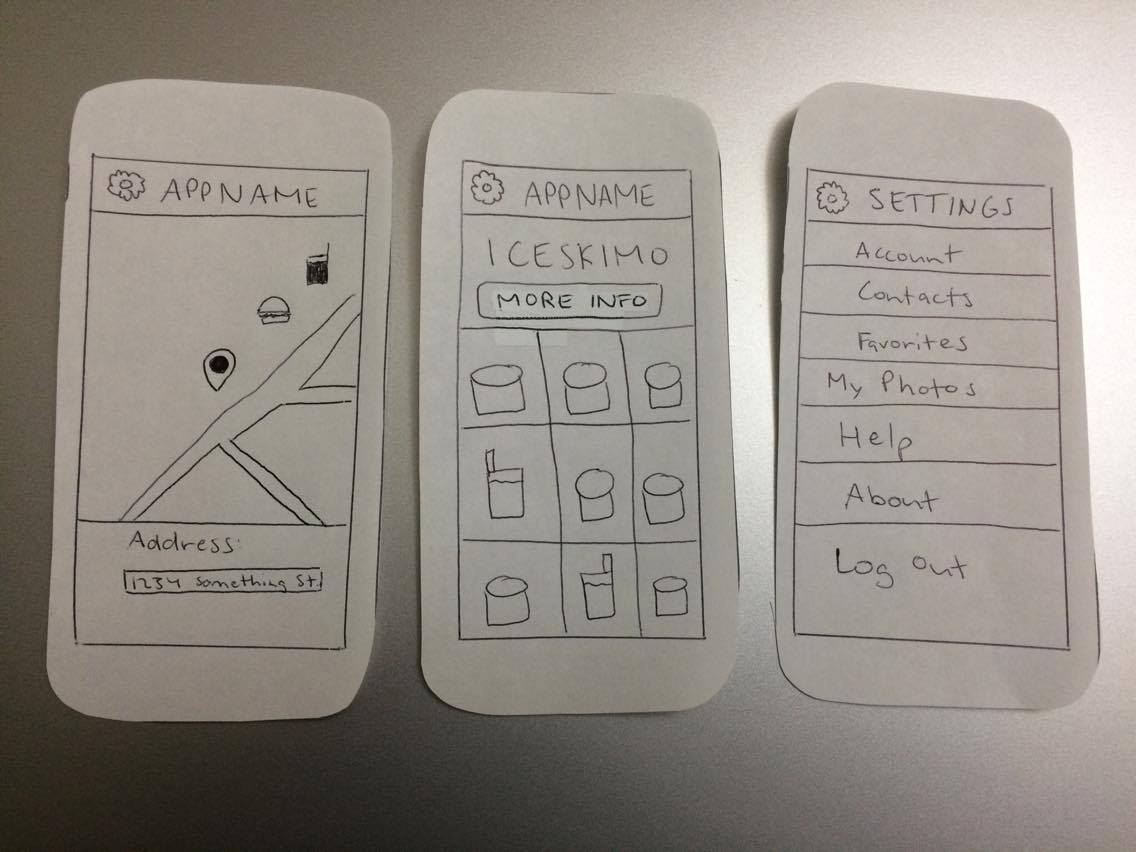 APPNAME
Address:
1234 Something St.
APPNAME
ICESKIMO
MORE INFO
SETTINGS
Account
Contacts
Favorites
My Photos
Help
About
Log Out